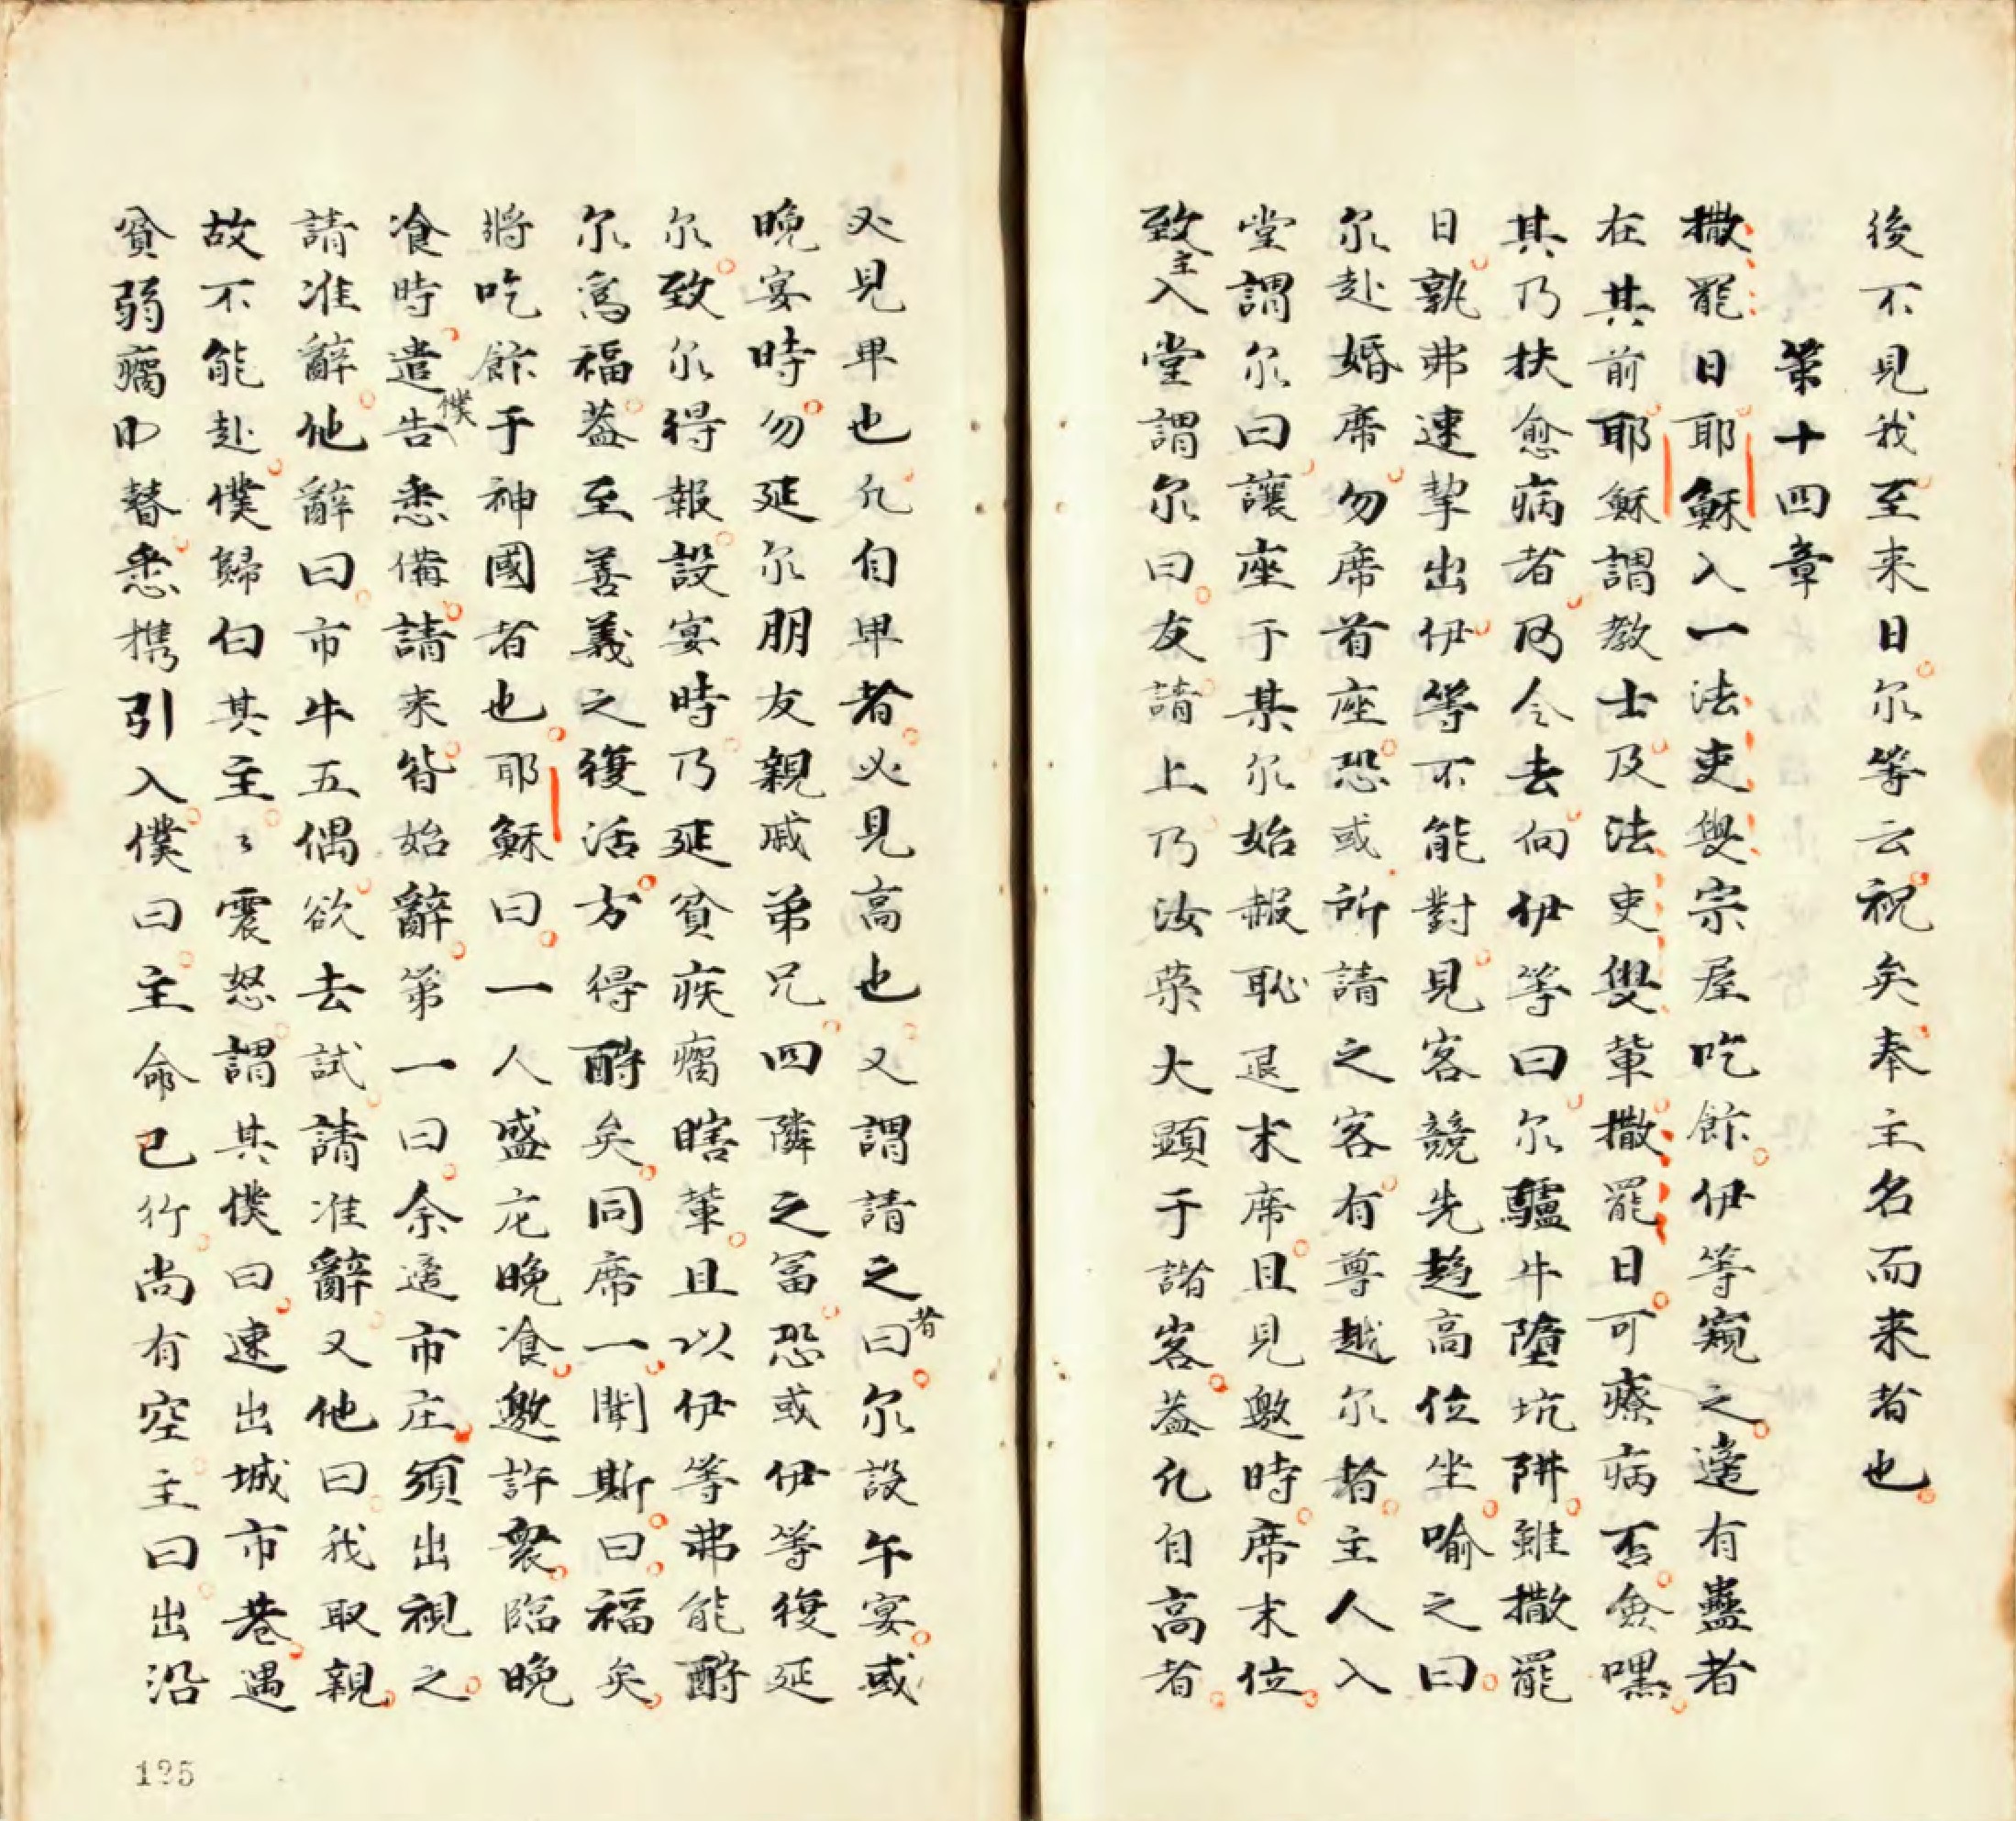 後不見我至来日尔等云祝矣奉主名而来者也
第十四章
撒罷日耶穌入一法吏𠁅宗屋吃餘伊等窺之適有蠱者
在其前耶穌謂教士及法吏𠁅軰撒罷日可療病否僉嘿
其乃扶愈病者乃令去向伊等曰尔驢牛墮坑阱雖撒罷
日孰弗速挚出伊等不能對見客競先趋高位坐喻之曰
尔赴婚席勿席首座恐或所請之客有尊越尔者主人入
堂謂尔曰讓座于某尔始赧恥退末席且見邀時席末位
致主入堂謂尔曰友請上乃汝荣大顕于諸客葢凢自高者
必見卑也凢自卑者必見高也又謂請之者曰尔設午宴或
晚宴時勿延尔朋友親戚弟兄四隣之冨恐或伊等復延
尔致尔得報設宴時乃延貧疾瘸瞎軰且以伊等弗能酧
尔為福葢至善義之復活方得酧矣同席一聞斯曰福矣
將吃餘于神國者也耶穌曰一人盛庀晚飡邀許衆臨晚
飡時遣僕告悉備請来皆始辭第一曰余適市庄須出視之
請准辭他辭曰市牛五偶欲去試請准辭又他曰我取親
故不能赴僕歸白其主〻震怒謂其僕曰速出城市巷遇
貧弱瘸𠕋瞽悉携引入僕曰主命已行尚有空主曰出沿
125